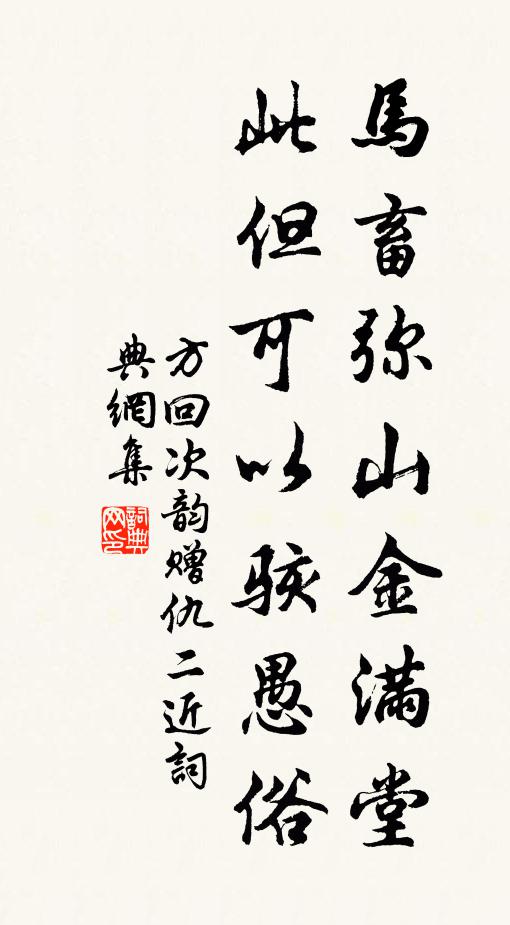 馬畜弥山金满堂
此但可以骇愚俗
方回次韵赠仇二近詞
典網集
詞典
网印